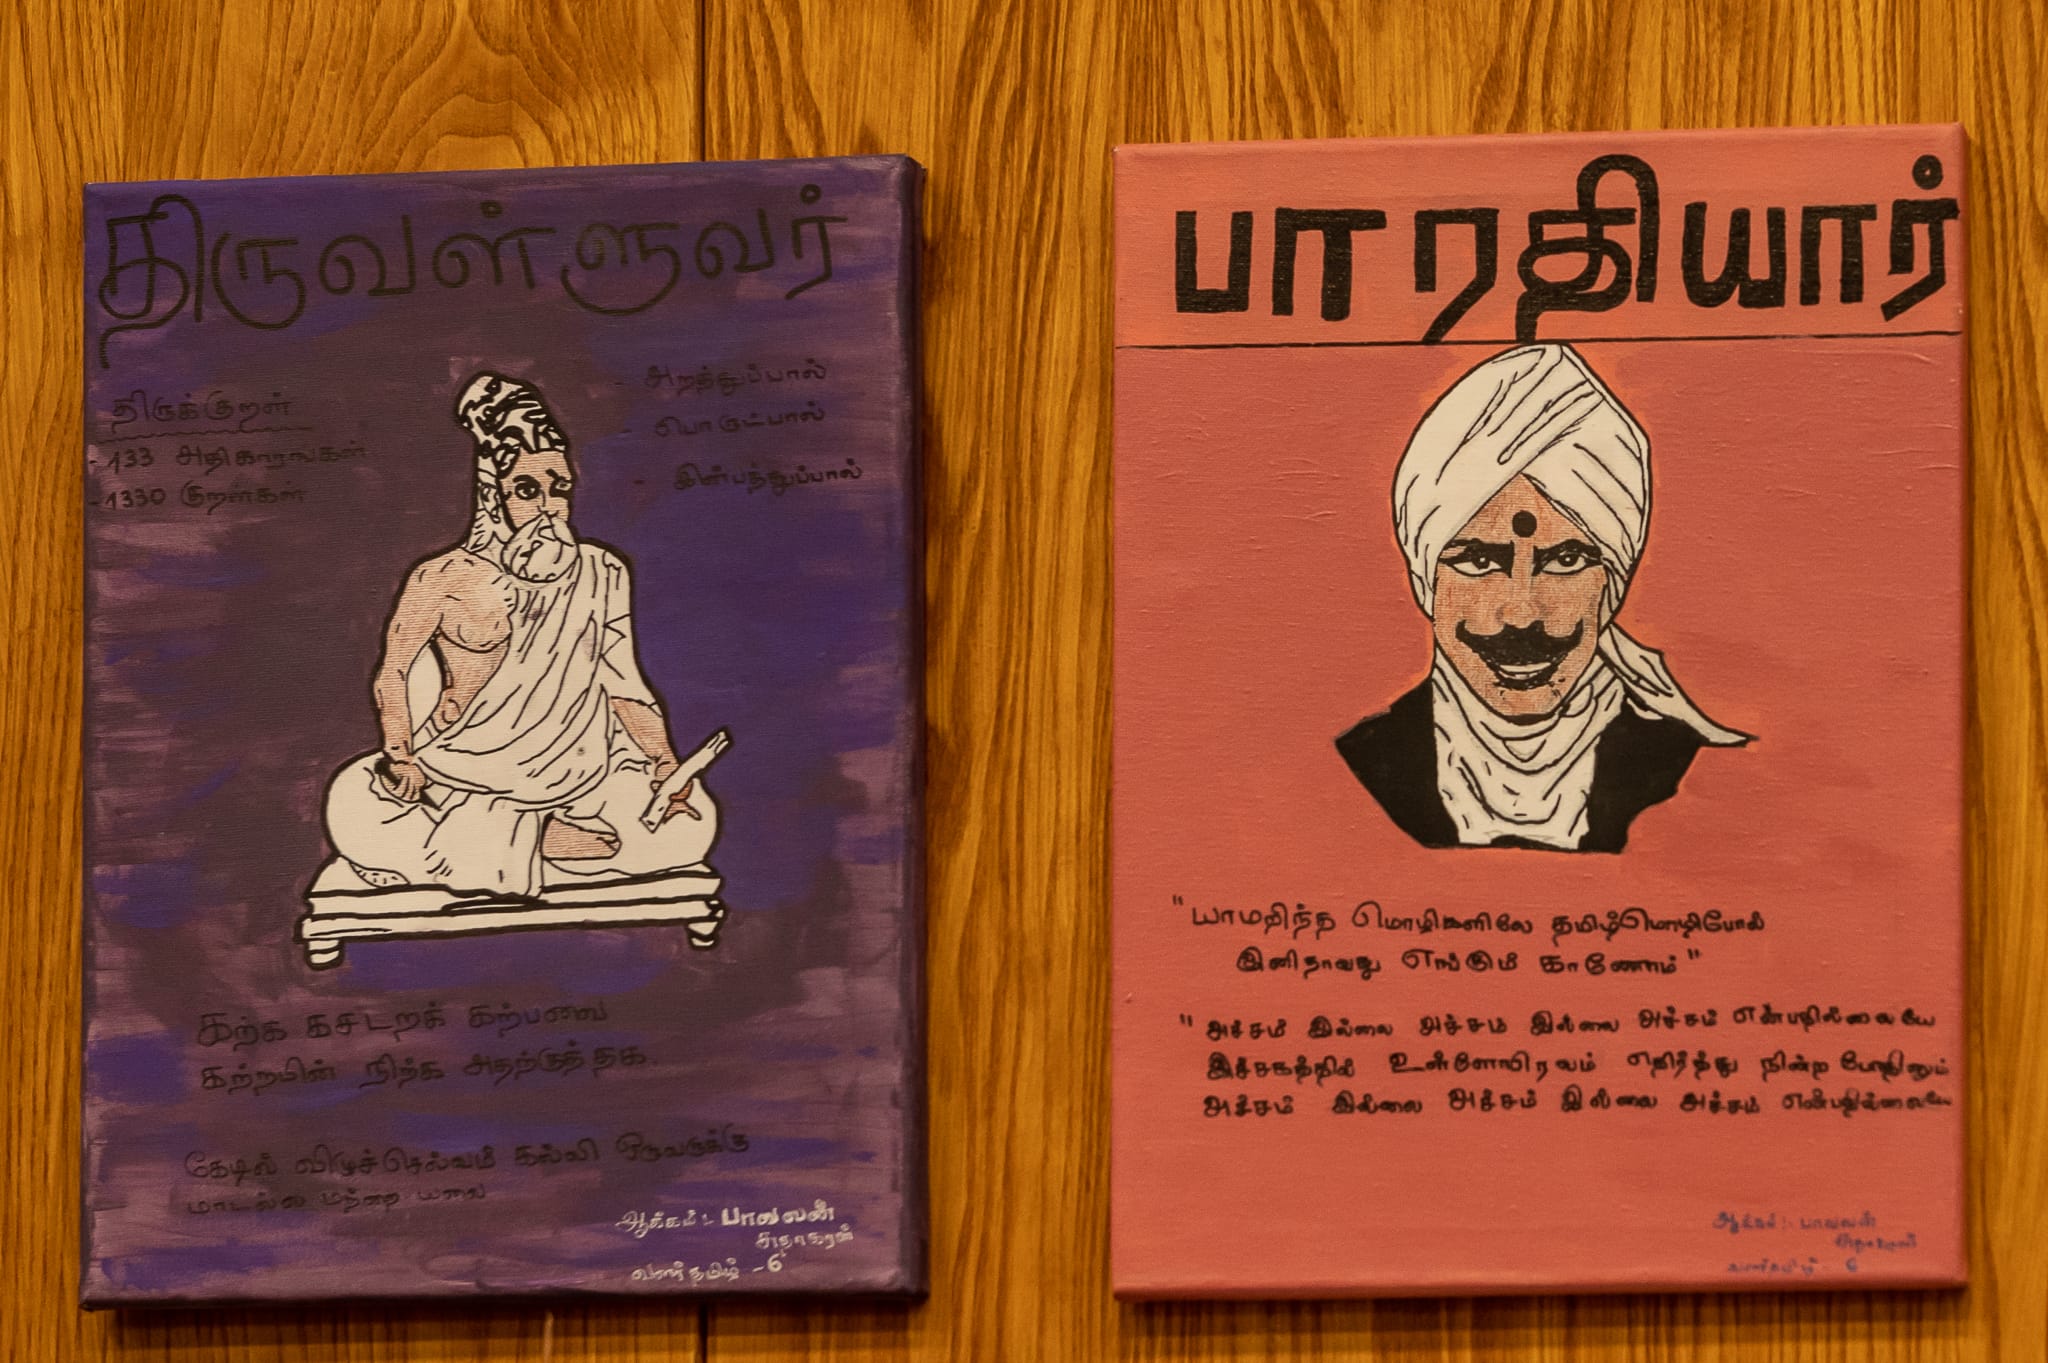 திருவள்ளுவர்
திருக்குறள்
-133 அதிகாரங்கள்
-1330 குறள்கள்
- அறத்துப்பால்
- பொருட்பால்
- இன்பத்துப்பால்
கற்க கசடறக் கற்பவை
கற்றபின் நிற்க அதற்குத் தக.
கேடில் விழுச்செல்வம் கல்வி ஒருவருக்கு
மாடல்ல மற்றை யவை
ஆக்கம் : பாவலன்
சுதாகரன்
வளர்தமிழ் - 6
பாரதியார்
"யாமறிந்த மொழிகளிலே தமிழ்மொழிபோல்
இனிதாவது எங்கும் காணோம்"
"அச்சம் இல்லை அச்சம் இல்லை அச்சம் என்பதில்லையே
இச்சகத்தில் உள்ளோயிரலம் எதிர்த்து நின்ற போதினும்
அச்சம் இல்லை அச்சம் இல்லை அச்சம் என்பதில்லையே
ஆக்கம் : பாவலன்
சுதாகரன்
வளர்தமிழ் - 6